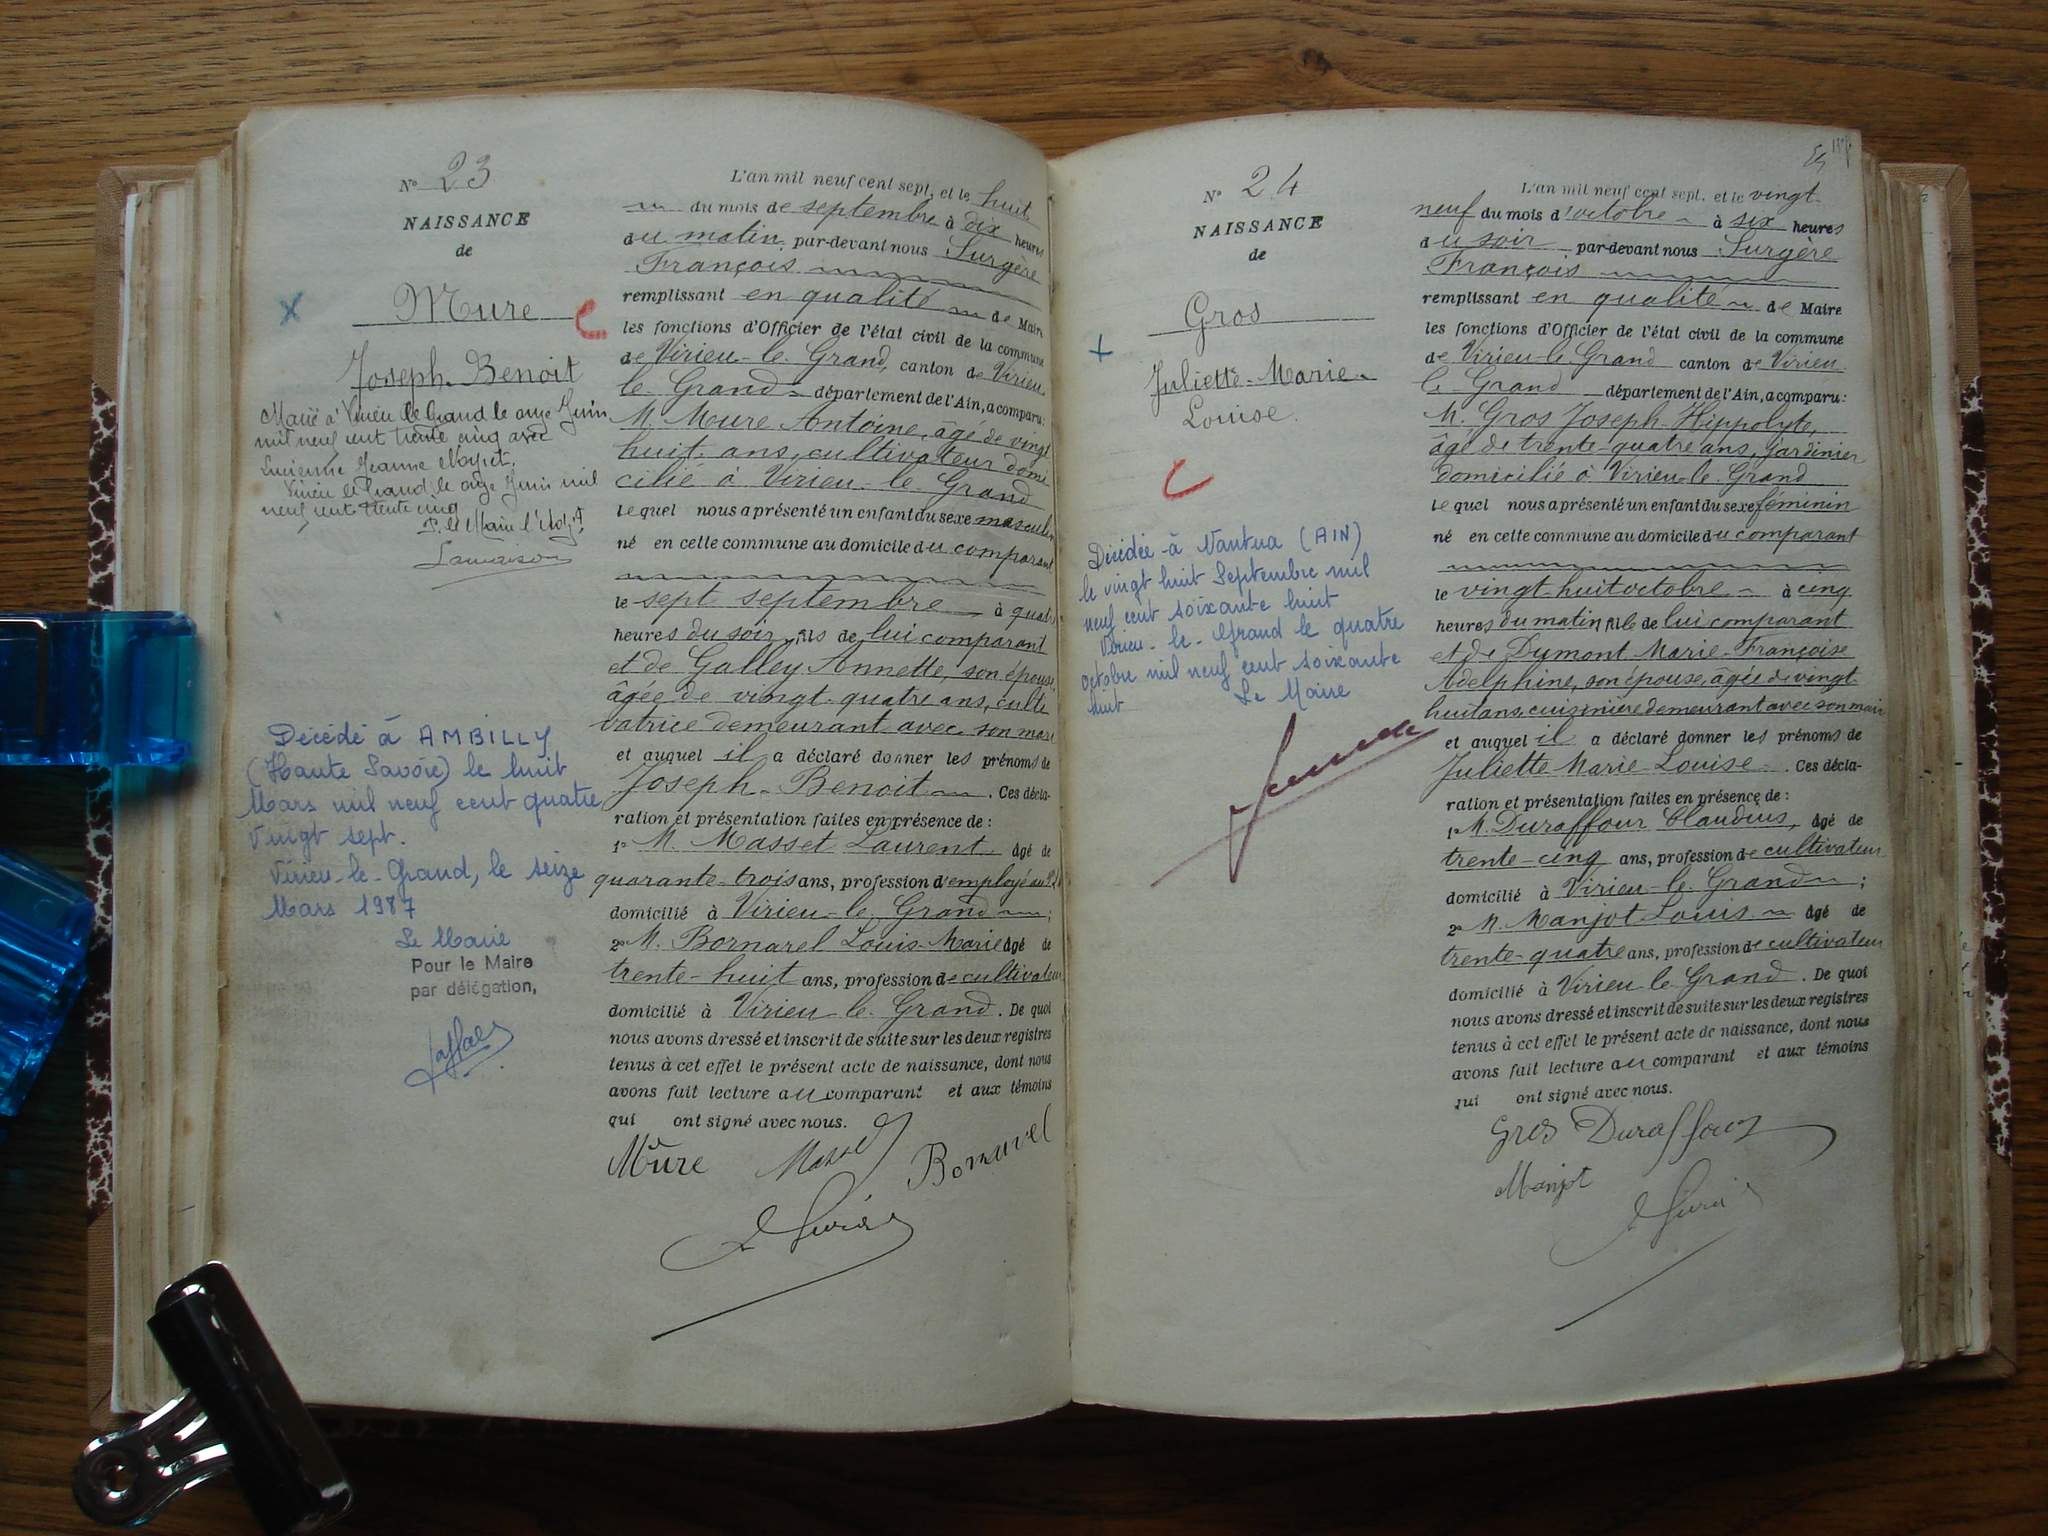 N° 23
NAISSANCE
de
Mure
Joseph-Benoit
Marié à Virieu le Grand le onze Juin
mil neuf cent trente cinq avec
Lucienne Jeanne
Virieu le Grand le onze Juin mil
neuf cent trente cinq
P. le Maire l'Adjt
Décédé à AMBILLY
(Haute Savoie) le huit
Mars mil neuf cent quatre
vingt sept.
Virieu-le-Grand, le seize
Mars 1987
Le Maire
Pour le Maire
par délégation,
L'an mil neuf cent sept, et le huit
du mois de septembre à dix heures
du matin par-devant nous Surgère
François
remplissant en qualité de Maire
les fonctions d'Officier de l'état civil de la commune
de Virieu-le-Grand, canton de Virieu
le Grand département de l'Ain, a comparu:
M. Mure Antoine, âgé de vingt
huit ans, cultivateur domi
cilié à Virieu-le-Grand
lequel nous a présenté un enfant du sexe masculin
né en cette commune au domicile du comparant
le sept septembre à quatre
heures du soir, fils de lui comparant
et de Galley Annette, son épouse,
âgée de vingt-quatre ans, culti
vatrice demeurant avec son mari
et auquel il a déclaré donner les prénoms de
Joseph-Benoit. Ces décla-
ration et présentation faites en présence de:
1° M. Masset Laurent âgé de
quarante-trois ans, profession d'employé au
domicilié à Virieu-le-Grand;
2° M. Bornarel Louis-Marie âgé de
trente-huit ans, profession de cultivateur
domicilié à Virieu le Grand. De quoi
nous avons dressé et inscrit de suite sur les deux registres
tenus à cet effet le présent acte de naissance, dont nous
avons fait lecture au comparant et aux témoins
qui ont signé avec nous.
Mure Masset Bornarel
N° 24
NAISSANCE
de
Gros
Juliette-Marie-
Louise.
Décédée à Nantua (AIN)
le vingt huit Septembre mil
neuf cent soixante huit
Virieu-le-Grand le quatre
octobre mil neuf cent soixante
huit Le Maire
L'an mil neuf cent sept, et le vingt-
neuf du mois d'octobre à six heures
du soir par-devant nous Surgère
François
remplissant en qualité de Maire
les fonctions d'Officier de l'état civil de la commune
de Virieu-le-Grand canton de Virieu
le Grand département de l'Ain, a comparu:
M. Gros Joseph-Hippolyte,
âgé de trente-quatre ans, jardinier
domicilié à Virieu-le-Grand
lequel nous a présenté un enfant du sexe féminin
né en cette commune au domicile du comparant
le vingt-huit octobre à cinq
heures du matin, fille de lui comparant
et de Dumont Marie-Françoise
Adelphine, son épouse, âgée de vingt-
huit ans, cuisinière demeurant avec son mari
et auquel il a déclaré donner les prénoms de
Juliette Marie Louise. Ces décla-
ration et présentation faites en présence de:
1° M. Duraffour Claudius, âgé de
trente-cinq ans, profession de cultivateur
domicilié à Virieu-le-Grand;
2° M. Manjot Louis âgé de
trente-quatre ans, profession de cultivateur
domicilié à Virieu le Grand. De quoi
nous avons dressé et inscrit de suite sur les deux registres
tenus à cet effet le présent acte de naissance, dont nous
avons fait lecture au comparant et aux témoins
qui ont signé avec nous.
Gros Duraffour
Manjot